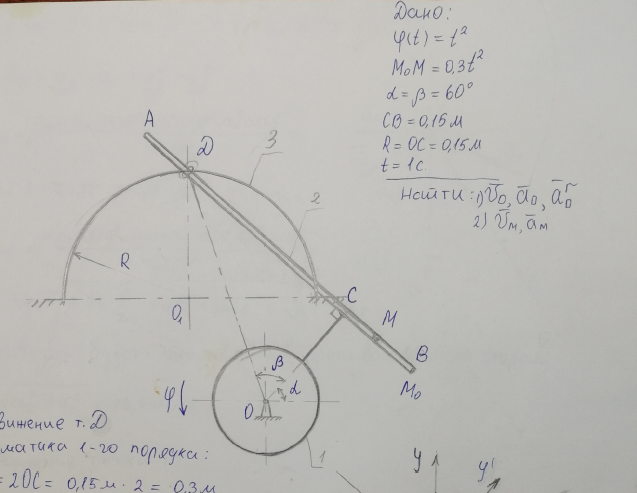 Дано:
φ(t) = t²
M₀M = 0,3t²
α = β = 60°
CB = 0,15 м
R = OC = 0,15 м
t = 1 c.
Найти: 1) v̄_D, ā_D, ā_D^r
2) v̄_M, ā_M
A
D
3
2
R
O₁
C
M
B
M₀
β
α
φ
O
1
вижение т. D
матика 1-го порядка:
= 2OC = 0,15 м · 2 = 0,3 м
y
y'